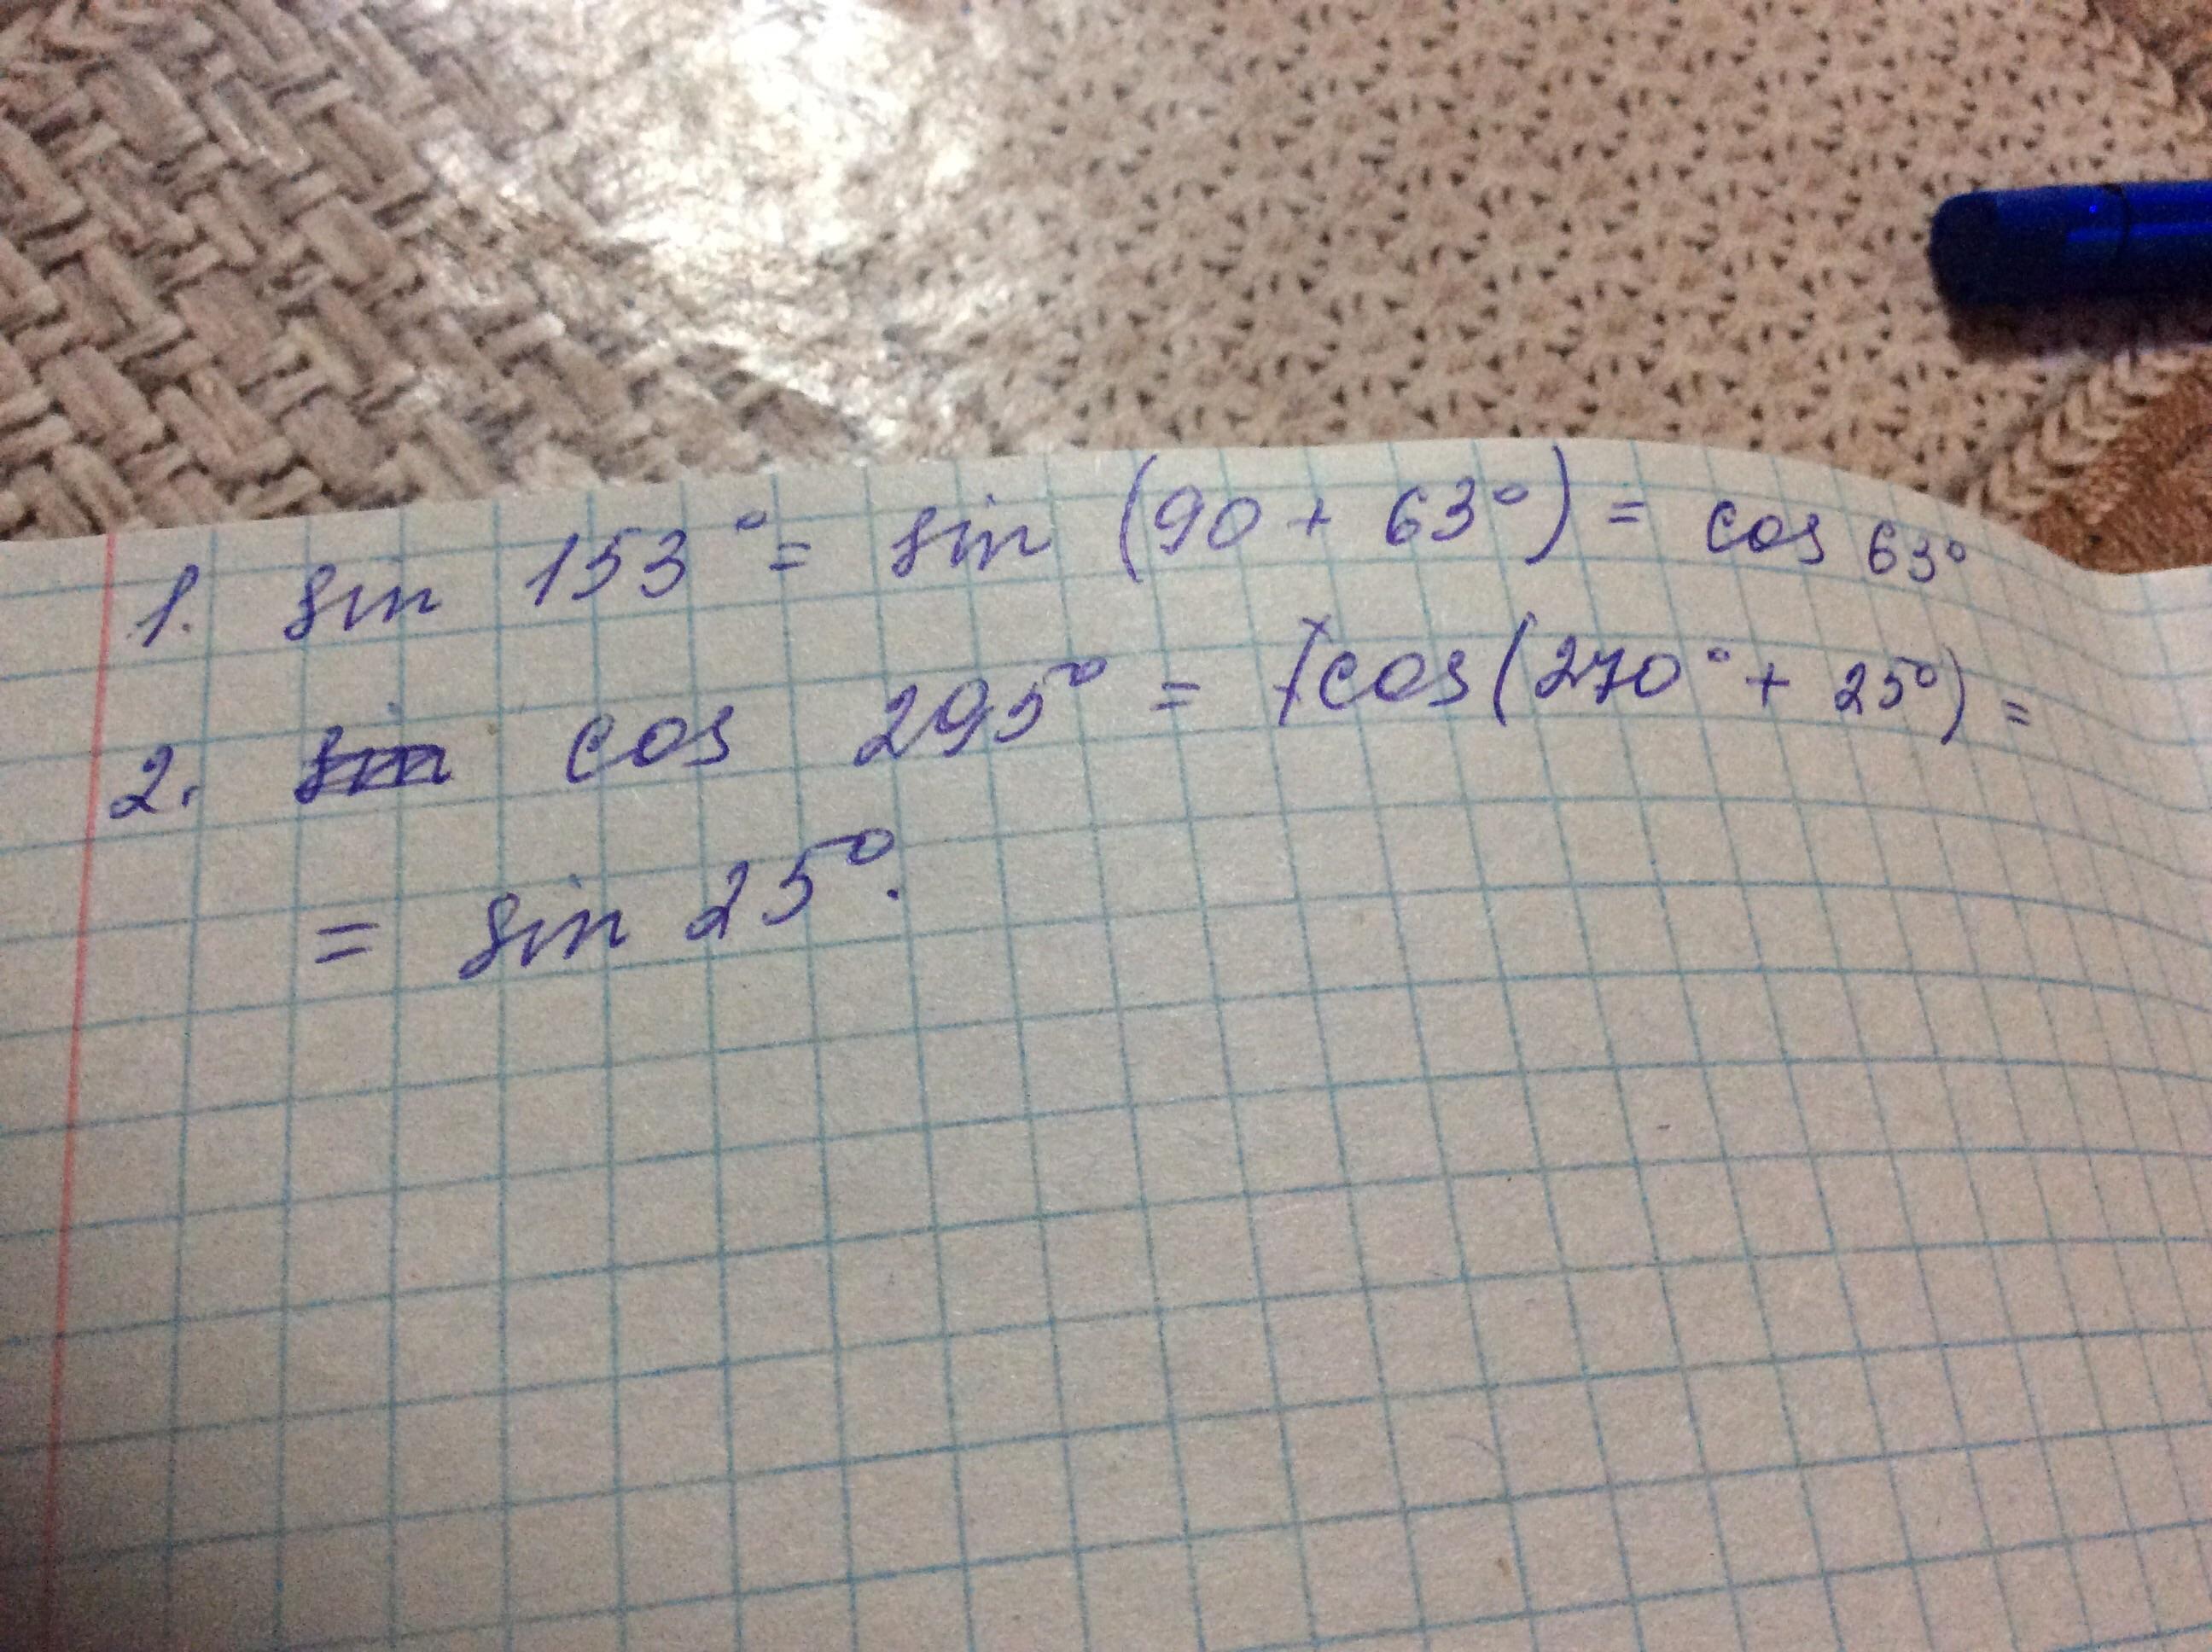 1. sin 153° = sin (90 + 63°) = cos 63°
2. cos 295° = cos (270° + 25°) =
= sin 25°.